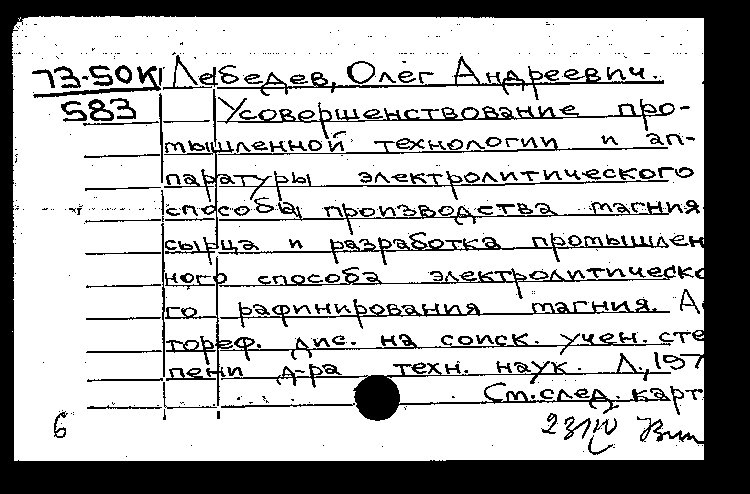 73-50К Лебедев, Олег Андреевич.
583 Усовершенствование про-
мышленной технологии и ап-
паратуры электролитического
способа производства магния
сырца и разработка промышлен
ного способа электролитическо
го рафинирования магния. А
тореф. дис. на соиск. учен. сте
пени д-ра техн. наук. Л., 197
См. след. карт
6 23/IV